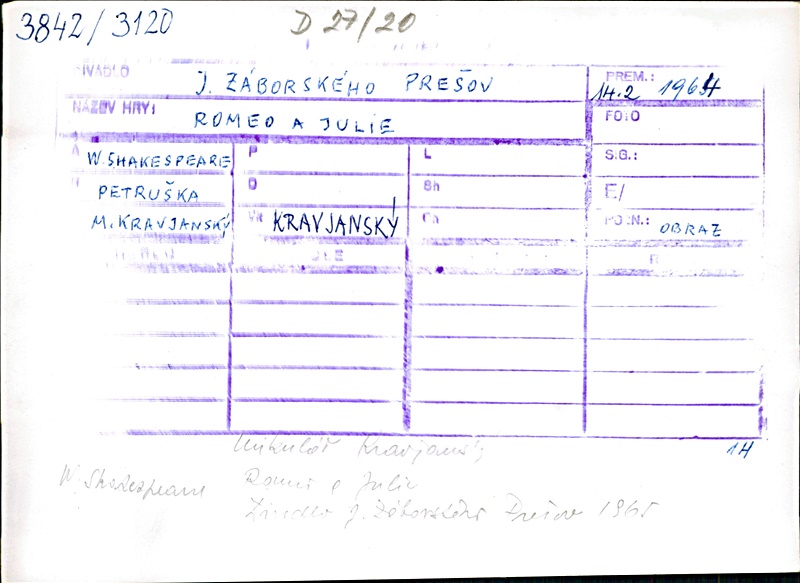 3842/3120
D 27/20
DIVADLO J. ZÁBORSKÉHO PREŠOV
PREM.: 14.2 1964
NÁZOV HRY: ROMEO A JULIE
FOTO
A W. SHAKESPEARE P L SIG.:
PETRUŠKA O Sh E/
M. KRAVJANSKÝ KRAVJANSKÝ POZN.: OBRAZ
R
1H
Mikuláš Kravjanský
W. Shakespeare Romeo a Julie
J. Záborského Prešov 1965